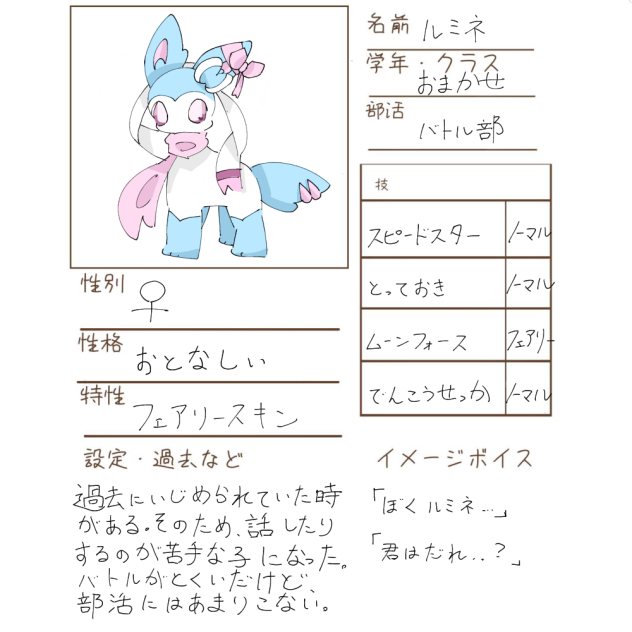 名前 ルミネ
学年・クラス
おまかせ
部活
バトル部
技
スピードスター ノーマル
とっておき ノーマル
ムーンフォース フェアリー
でんこうせっか ノーマル
性別 ♀
性格 おとなしい
特性 フェアリースキン
設定・過去など
過去にいじめられていた時
がある。そのため、話したり
するのが苦手な子になった。
バトルがとくいだけど、
部活にはあまりこない。
イメージボイス
「ぼくルミネ…」
「君はだれ..?」